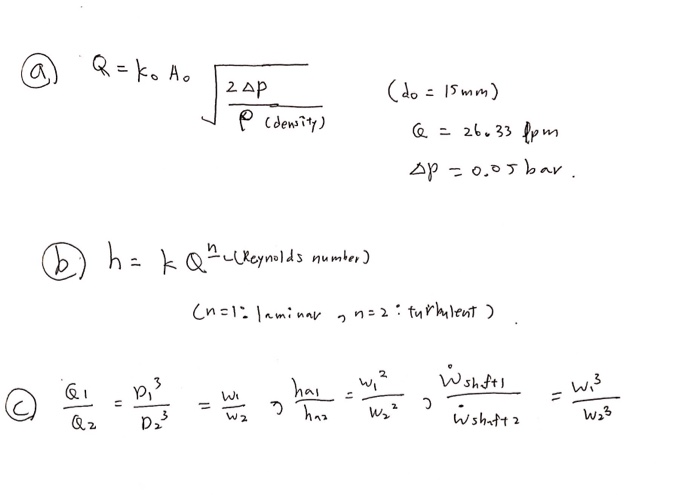 (a) Q = k₀ A₀ √(2 Δp / ρ (density))
(d₀ = 15mm)
Q = 26.33 lpm
Δp = 0.05 bar.
(b) h = k Qⁿ (Reynolds number)
(n=1: laminar, n=2: turbulent).
(c) Q₁/Q₂ = D₁³/D₂³ = W₁/W₂, ha₁/ha₂ = W₁²/W₂², Ẇshaft1/Ẇshaft2 = W₁³/W₂³